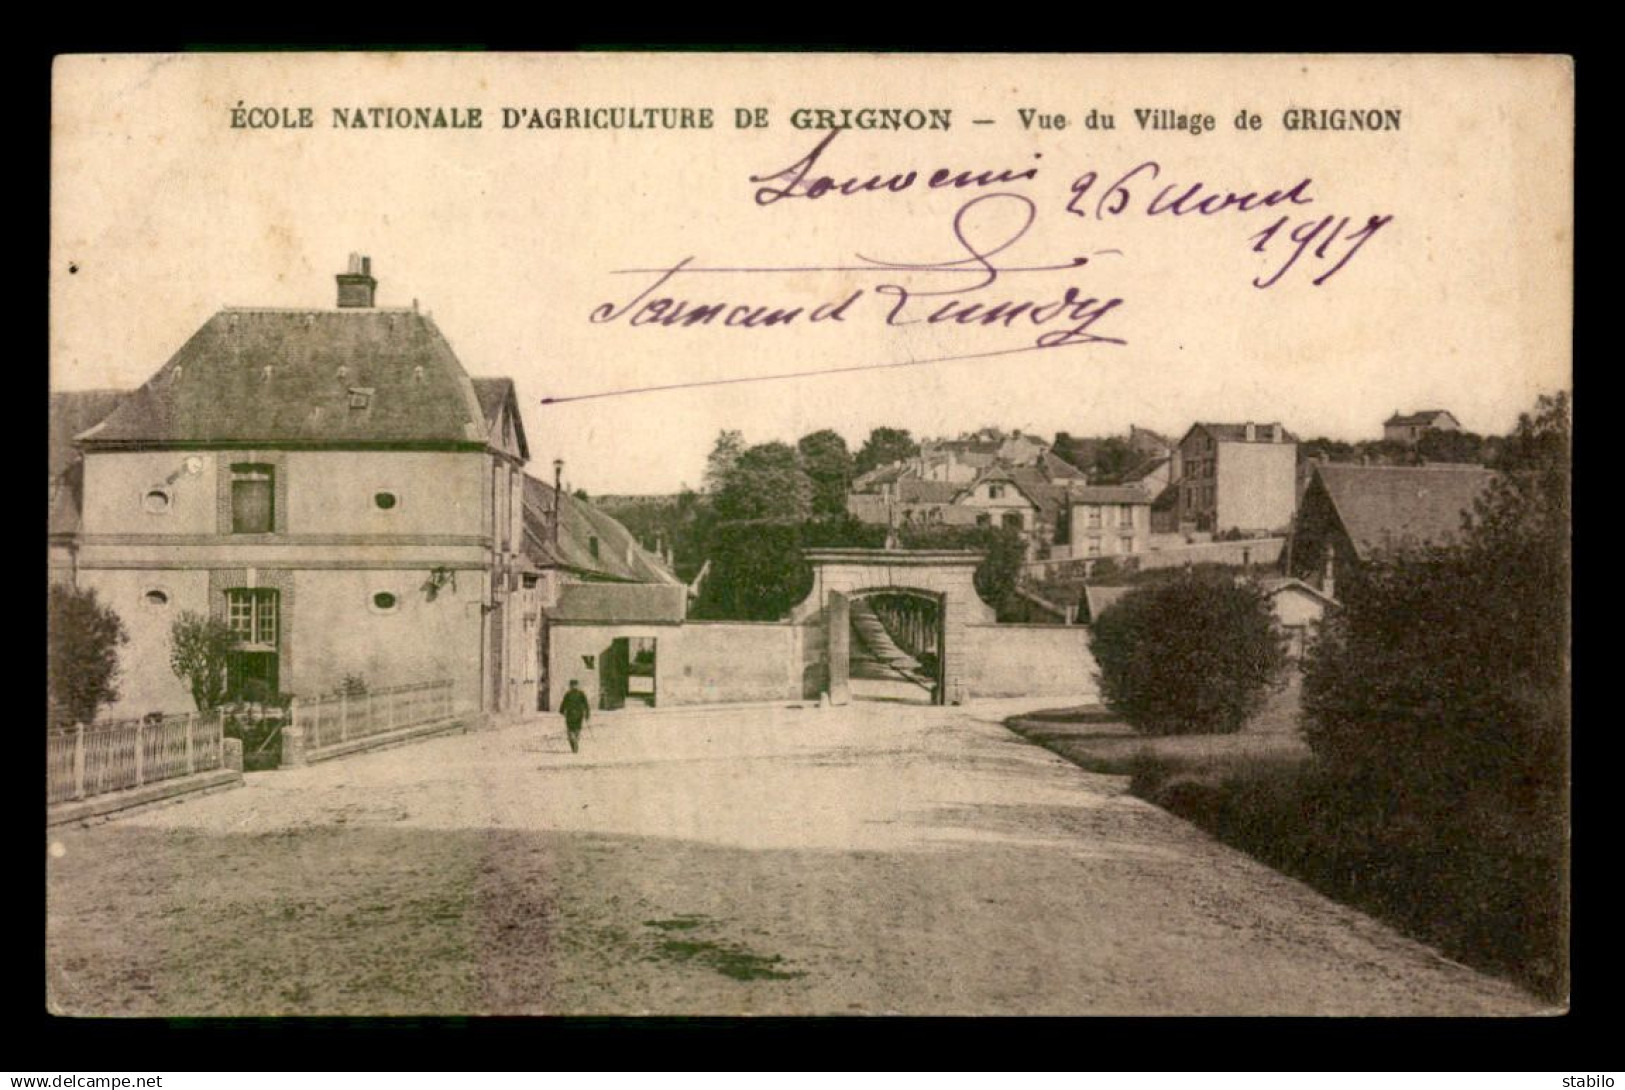 ÉCOLE NATIONALE D'AGRICULTURE DE GRIGNON — Vue du Village de GRIGNON
Souvenir 26 Aout
1917
Fernand
delcampe.net
stabilo